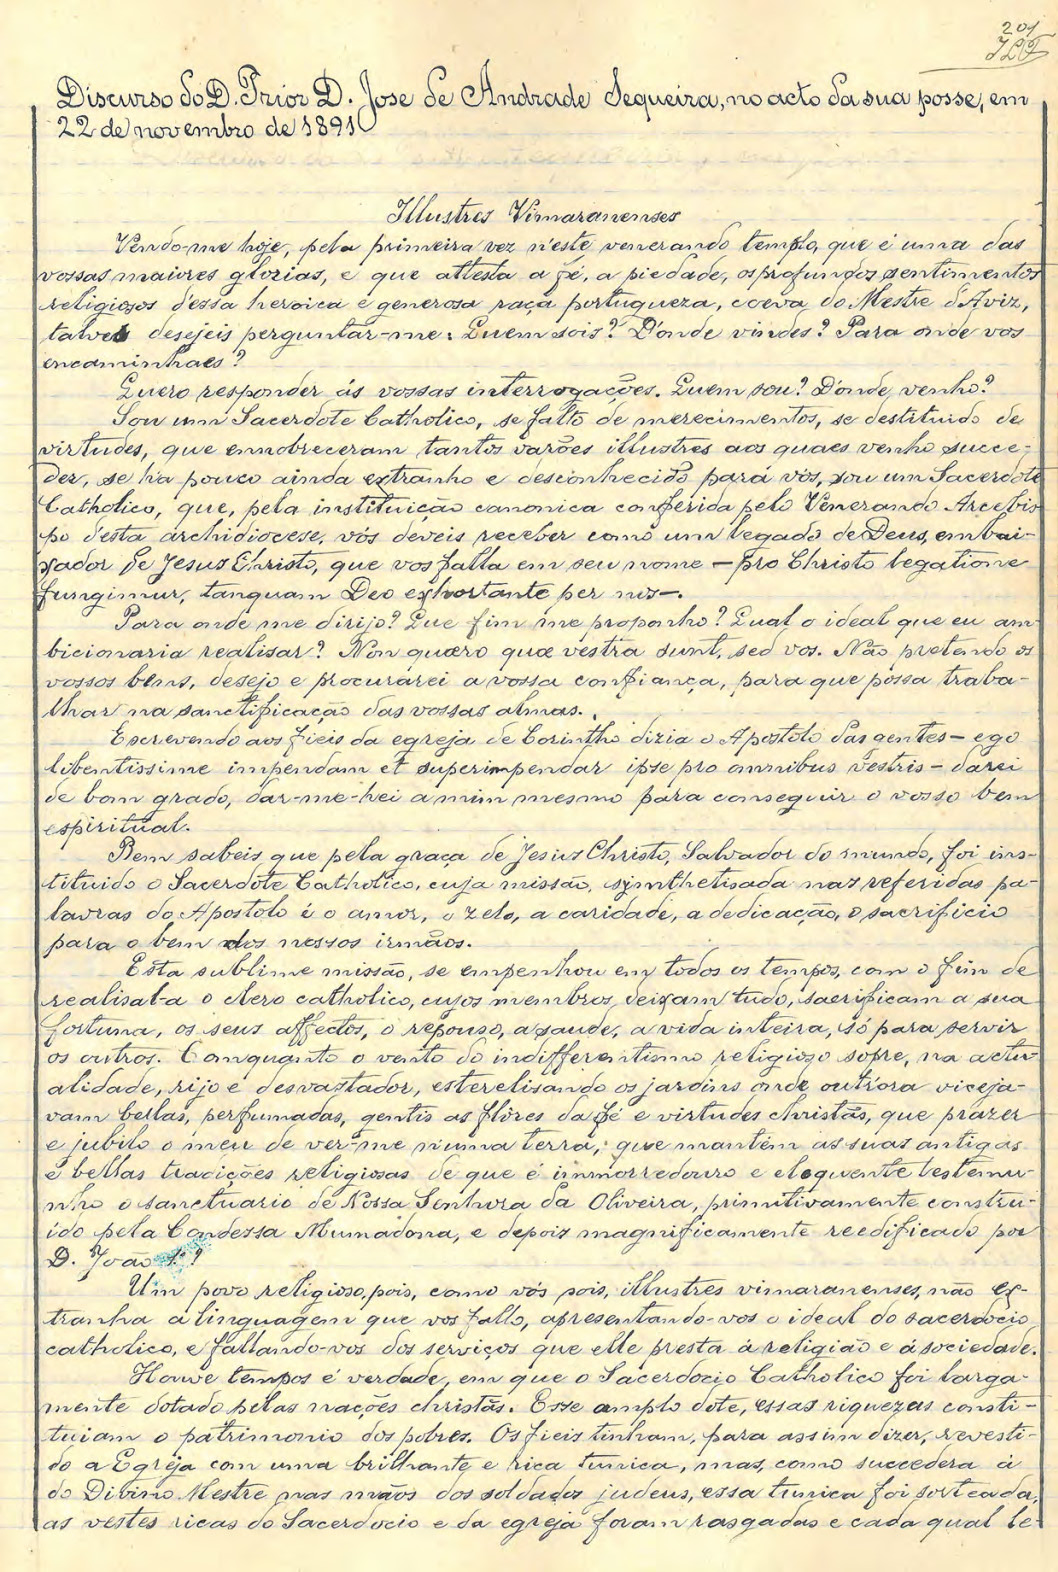 201
Discurso do D. Prior D. Jose de Andrade Sequeira, no acto da sua posse, em
22 de novembro de 1891
Illustres Vimaranenses
Vendo-me hoje, pela primeira vez n'este venerando templo, que é uma das
vossas maiores glorias, e que attesta a fé, a piedade, os profundos sentimentos
religiosos d'essa heroica e generosa raça portugueza, coeva do Mestre d'Aviz,
talvez desejeis perguntar-me: Quem sois? D'onde vindes? Para onde vos
encaminhaes?
Quero responder ás vossas interrogações. Quem sou? D'onde venho?
Sou um Sacerdote Catholico, se falto de merecimentos, se destituido de
virtudes, que ennobreceram tantos varões illustres aos quaes venho succe-
der, se ha pouco ainda extranho e desconhecido para vós, sou um Sacerdote
Catholico, que, pela instituição canonica conferida pelo Venerando Arcebis-
po d'esta archidiocese, vós deveis receber como um legado de Deus, embai-
xador de Jesus Christo, que vos falla em seu nome — pro Christo legatione
fungimur, tanquam Deo exhortante per nos —.
Para onde me dirijo? Que fim me proponho? Qual o ideal que eu am-
bicionaria realisar? Non quæro quæ vestra sunt, sed vos. Não pretendo os
vossos bens, desejo e procurarei a vossa confiança, para que possa traba-
lhar na sanctificação das vossas almas.
Escrevendo aos fieis da egreja de Corintho dizia o Apostolo das gentes — ego
libentissime impendam et superimpendar ipse pro omnibus vestris — darei
de bom grado, dar-me-hei a mim mesmo para conseguir o vosso bem
espiritual.
Bem sabeis que pela graça de Jesus Christo, Salvador do mundo, foi ins-
tituido o Sacerdote Catholico, cuja missão, synthetisada nas referidas pa-
lavras do Apostolo é o amor, o zelo, a caridade, a dedicação, o sacrificio
para o bem dos nossos irmãos.
Esta sublime missão, se empenhou em todos os tempos, com o fim de
realisal-a o clero catholico, cujos membros, deixam tudo, sacrificam a sua
fortuna, os seus affectos, o repouso, a saude, a vida inteira, só para servir
os outros. Conquanto o vento do indifferentismo religioso sopre, na actu-
alidade, rijo e desvastador, esterelisando os jardins onde outr'ora viceja-
vam bellas, perfumadas, gentis as flôres da fé e virtudes christãs, que prazer
e jubilo o meu de ver-me n'uma terra, que mantem as suas antigas
e bellas tradições religiosas de que é immorredouro e eloquente testemu-
nho o sanctuario de Nossa Senhora da Oliveira, primitivamente constru-
ido pela Condessa Mumadona, e depois magnificamente reedificado por
D. João 1.º!
Um povo religioso, pois, como vós sois, illustres vimaranenses, não ex-
tranha a linguagem que vos fallo, apresentando-vos o ideal do sacerdocio
catholico, e fallando-vos dos serviços que elle presta á religião e á sociedade.
Houve tempos é verdade, em que o Sacerdocio Catholico foi larga-
mente dotado pelas nações christãs. Esse amplo dote, essas riquezas consti-
tuiam o patrimonio dos pobres. Os fieis tinham, para assim dizer, revesti-
do a Egreja com uma brilhante e rica tunica, mas, como succedera á
do Divino Mestre nas mãos dos soldados judeus, essa tunica foi sorteada,
as vestes ricas do Sacerdocio e da egreja foram rasgadas e cada qual le-